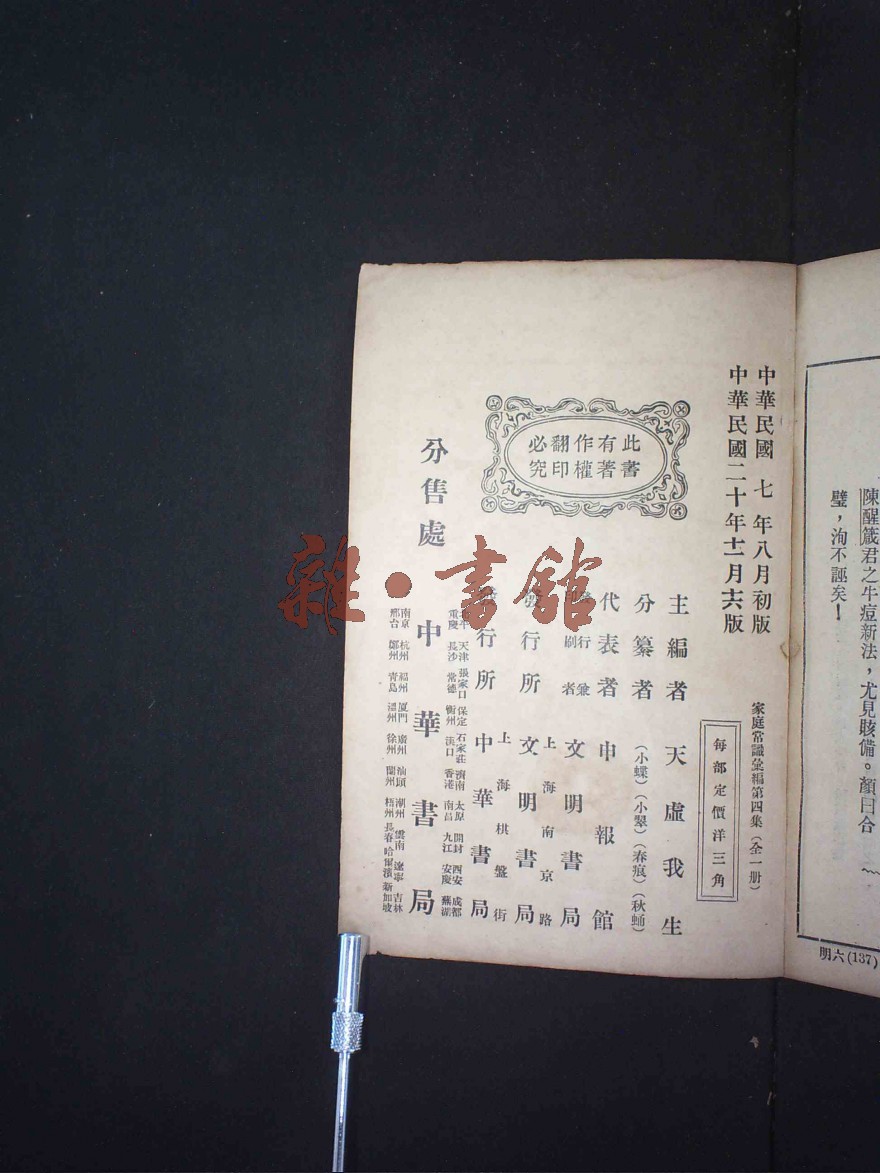 陳醒箴君之牛痘新法，尤見賅備。顏曰合
璧，洵不誣矣！
明六(137)
中華民國七年八月初版
中華民國二十年十二月十六版
家庭常識彙編第四集（全一册）
每部定價洋三角
此書有著作權翻印必究
主編者 天虛我生
分纂者 （小蝶）（小翠）（春痕）（秋蛹）
代表者 申報館
行兼刷者 文明書局
上海南京路
行所 文明書局
上海棋盤街
行所 中華書局
分售處 中華書局
北平 天津 張家口 保定 石家莊 濟南 太原 開封 西安 成都
重慶 長沙 常德 衡州 漢口 香港 南昌 九江 安慶 蕪湖
南京 杭州 福州 厦門 廣州 汕頭 潮州 雲南 遼寧 吉林
邢台 鄭州 青島 溫州 徐州 蘭州 梧州 長春 哈爾濱 新加坡
雜·書館